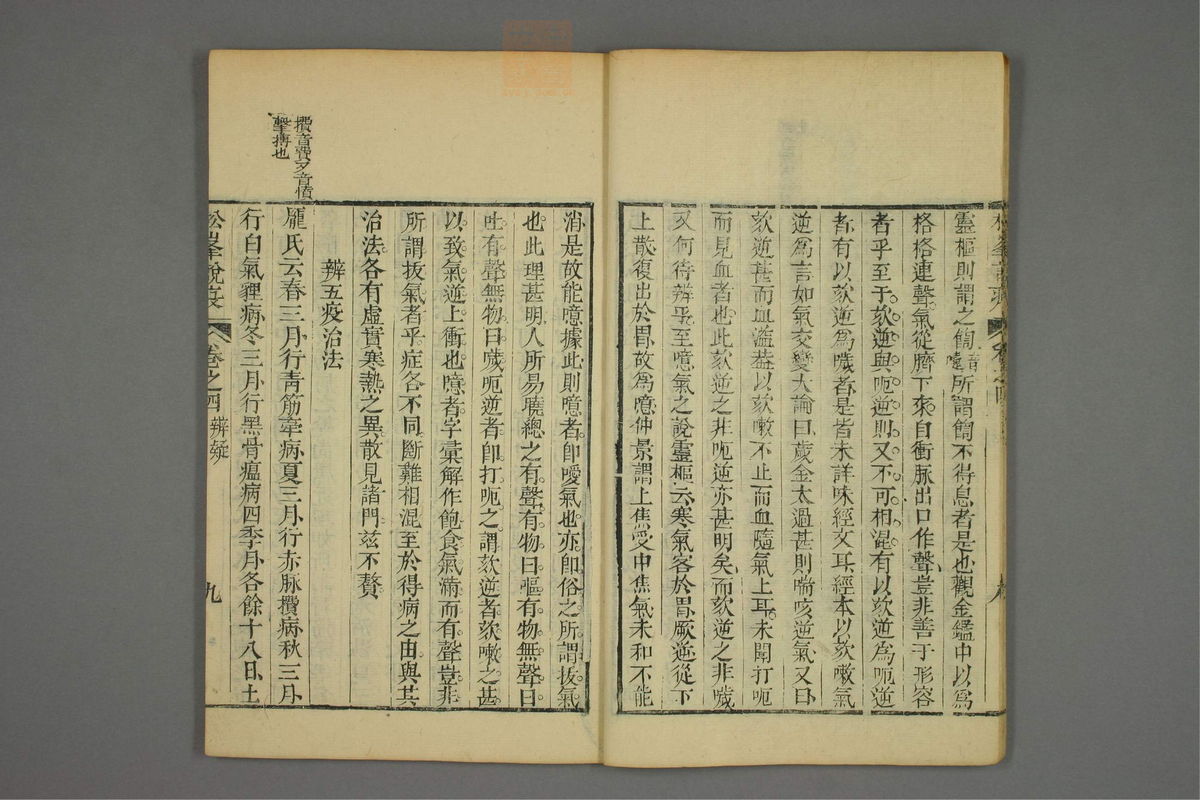 靈樞則謂之𩚬音噎所謂𩚬不得息者是也觀金鑑中以爲
格格連聲氣從臍下來自衝脉出口作聲豈非善于形容
者乎至于欬逆與呃逆則又不可相混有以欬逆為呃逆
者有以欬逆爲噦者是皆未詳味經文耳經本以欬嗽氣
逆爲言如氣交變大論曰歲金太過甚則喘咳逆氣又曰
欬逆甚而血溢葢以欬嗽不止而血隨氣上耳未聞打呃
而見血者也此欬逆之非呃逆亦甚明矣而欬逆之非噦
又何待辨乎至噫氣之說靈樞云寒氣客於胃厥逆從下
上散復出於胃故爲噫仲景謂上焦受中焦氣未和不能
消是故能噫據此則噫者卽噯氣也亦卽俗之所謂拔氣
也此理甚明人所易曉總之有聲有物曰嘔有物無聲曰
吐有聲無物曰噦呃逆者卽打呃之謂欬逆者欬嗽之甚
以致氣逆上衝也噫者字彙解作飽食氣滿而有聲豈非
所謂拔氣者乎症各不同斷難相混至於得病之由與其
治法各有虛實寒熱之異散見諸門茲不贅
辨五疫治法
攢音費又音憤
擊搏也
龐氏云春三月行青筋牽病夏三月行赤脉攢病秋三月
行白氣貍病冬三月行黑骨瘟病四季月各餘十八日土
松峯說疫
卷之四 辨疑
九